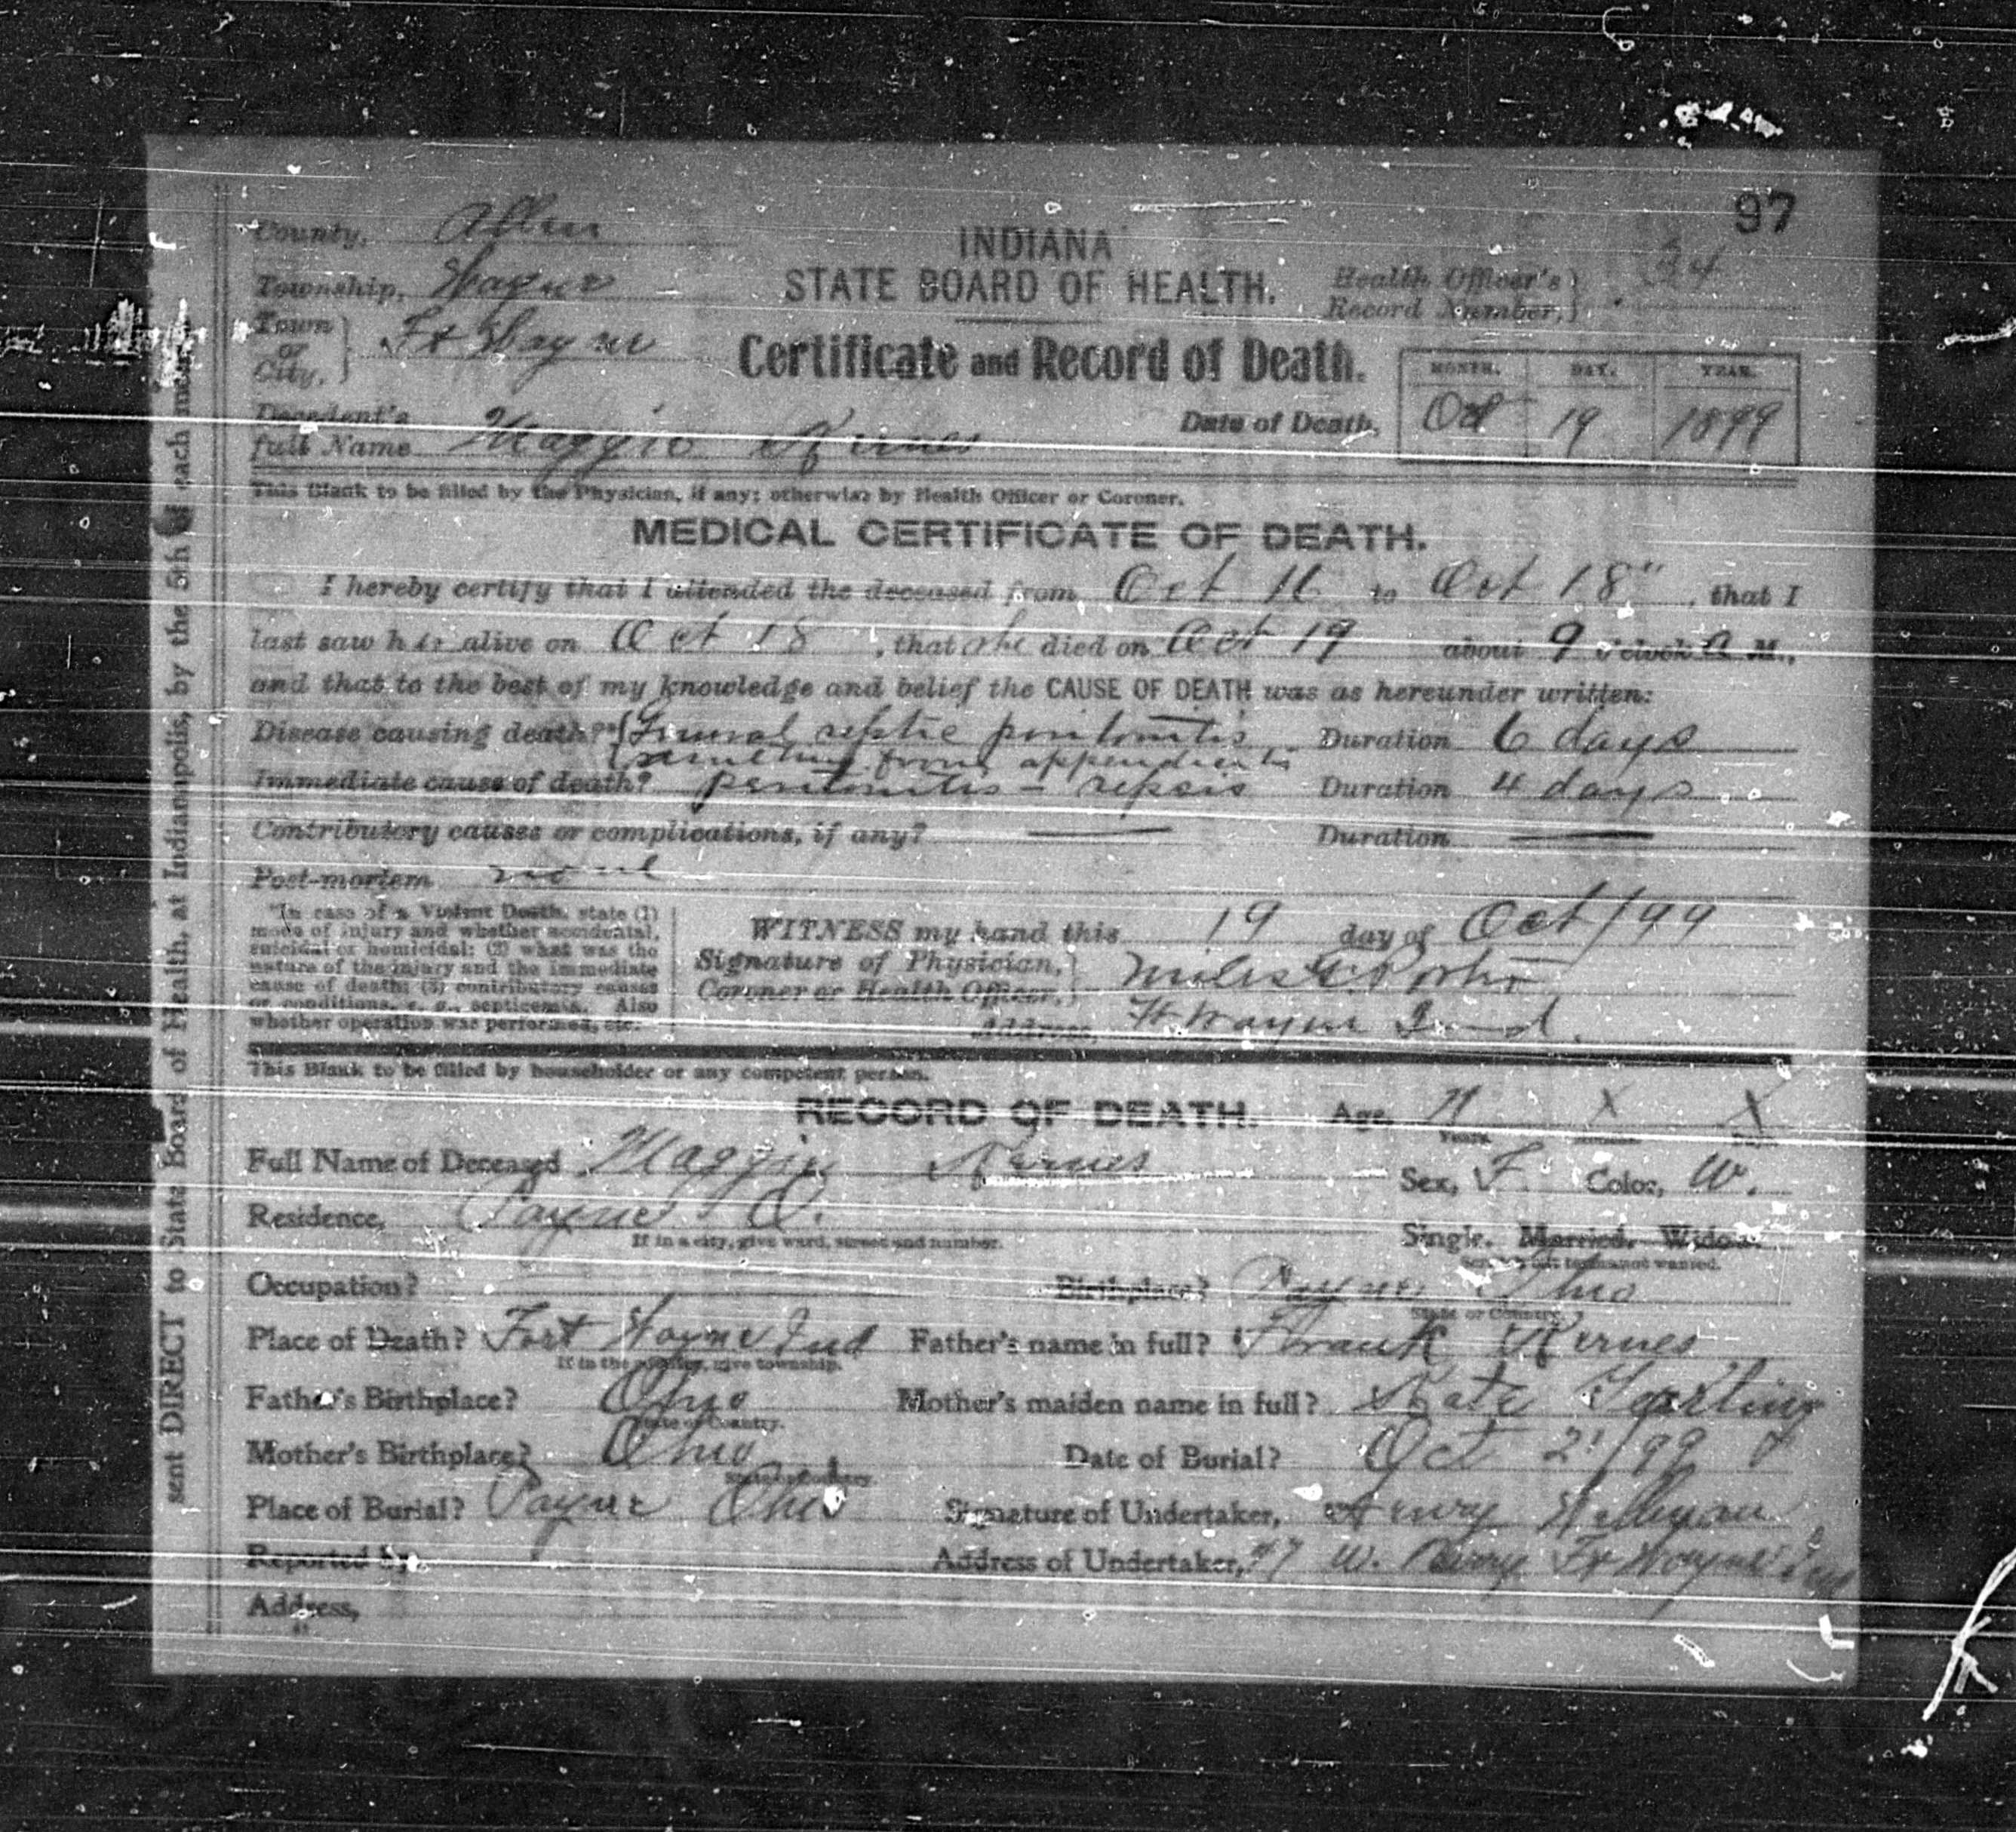 97
County, Allen
INDIANA
STATE BOARD OF HEALTH.
Health Officer's
Record Number, 44
Township, Wayne
Town or City, Ft Wayne
Certificate and Record of Death.
MONTH. DAY. YEAR.
Date of Death, Oct 19 1899
Decedent's full Name Maggie Kernes
This Blank to be filled by the Physician, if any; otherwise by Health Officer or Coroner.
MEDICAL CERTIFICATE OF DEATH.
I hereby certify that I attended the deceased from Oct 16 to Oct 18", that I
last saw her alive on Oct 18, that she died on Oct 19 about 9 o'clock A M.,
and that to the best of my knowledge and belief the CAUSE OF DEATH was as hereunder written:
Disease causing death?* General septic peritonitis Duration 6 days
resulting from appendicitis
Immediate cause of death? peritonitis - sepsis Duration 4 days
Contributory causes or complications, if any? — Duration —
Post-mortem none
*In case of a Violent Death, state (1)
mode of injury and whether accidental,
suicidal or homicidal; (2) what was the
nature of the injury and the immediate
cause of death; (3) contributory causes
or conditions, e. g., septicemia. Also
whether operation was performed, etc.
WITNESS my hand this 19 day of Oct/99
Signature of Physician,
Coroner or Health Officer, Miles F. Porter
Address, Ft Wayne Ind.
This Blank to be filled by householder or any competent person.
RECORD OF DEATH. Age, X X
Years.
Full Name of Deceased Maggie Kernes
Sex, F. Color, W.
Residence, Payne O.
If in a city, give ward, street and number.
Single. Married. Widow.
terms not wanted.
Occupation?
Birthplace? Payne Ohio
State or Country.
Place of Death? Fort Wayne Ind
If in the country, give township.
Father's name in full? Frank Kernes
Father's Birthplace? Ohio
State or Country.
Mother's maiden name in full? Kate
Mother's Birthplace? Ohio
State or Country.
Date of Burial? Oct 21/99
Place of Burial? Payne Ohio
Signature of Undertaker, Henry
Reported by
Address of Undertaker, 97 W. Berry Ft Wayne Ind
Address,
sent DIRECT to State Board of Health, at Indianapolis, by the 5th of each month.